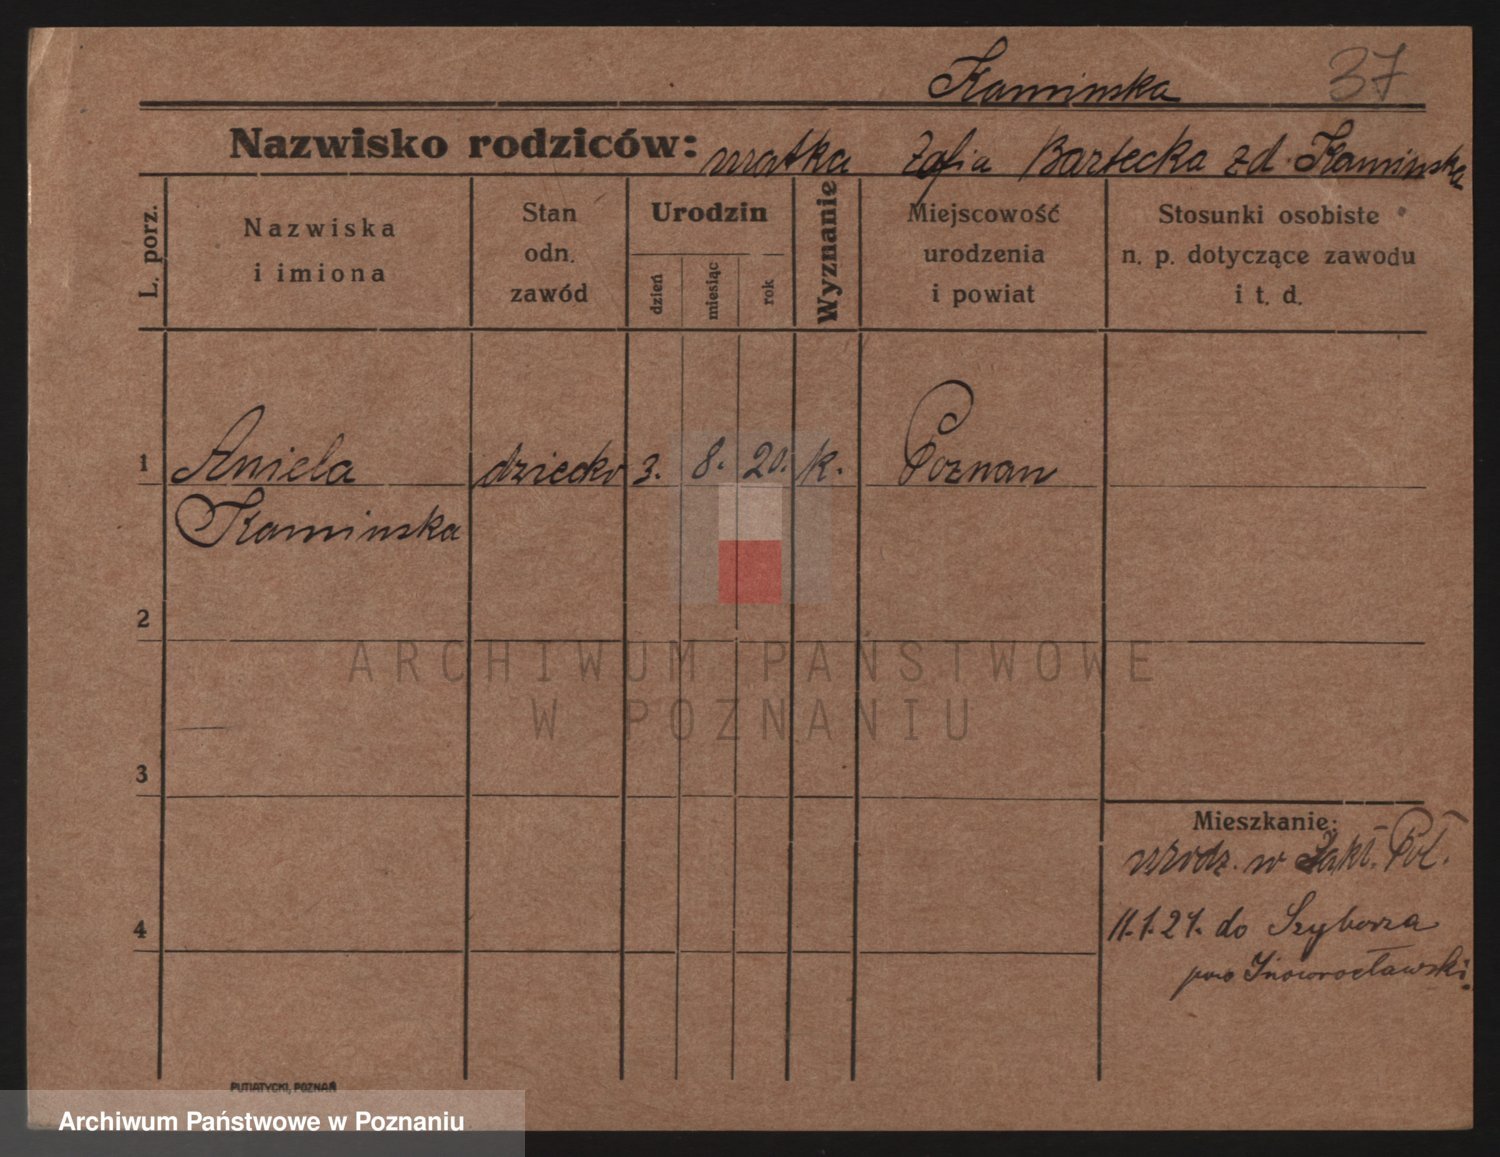 Kaminska 37
Nazwisko rodziców: matka Zofia Bartecka zd. Kaminska
L. porz.
Nazwiska
i imiona
Stan
odn.
zawód
Urodzin
dzień
miesiąc
rok
Wyznanie
Miejscowość
urodzenia
i powiat
Stosunki osobiste
n. p. dotyczące zawodu
i t. d.
1 Aniela dziecko 3. 8. 20. k. Poznan
Kaminska
2
ARCHIWUM PAŃSTWOWE
W POZNANIU
3
Mieszkanie:
urodz. w Zakł. Poł.
4
11.1.21. do Szyborza
pow Inowrocławski.
PUTIATYCKI, POZNAŃ
Archiwum Państwowe w Poznaniu